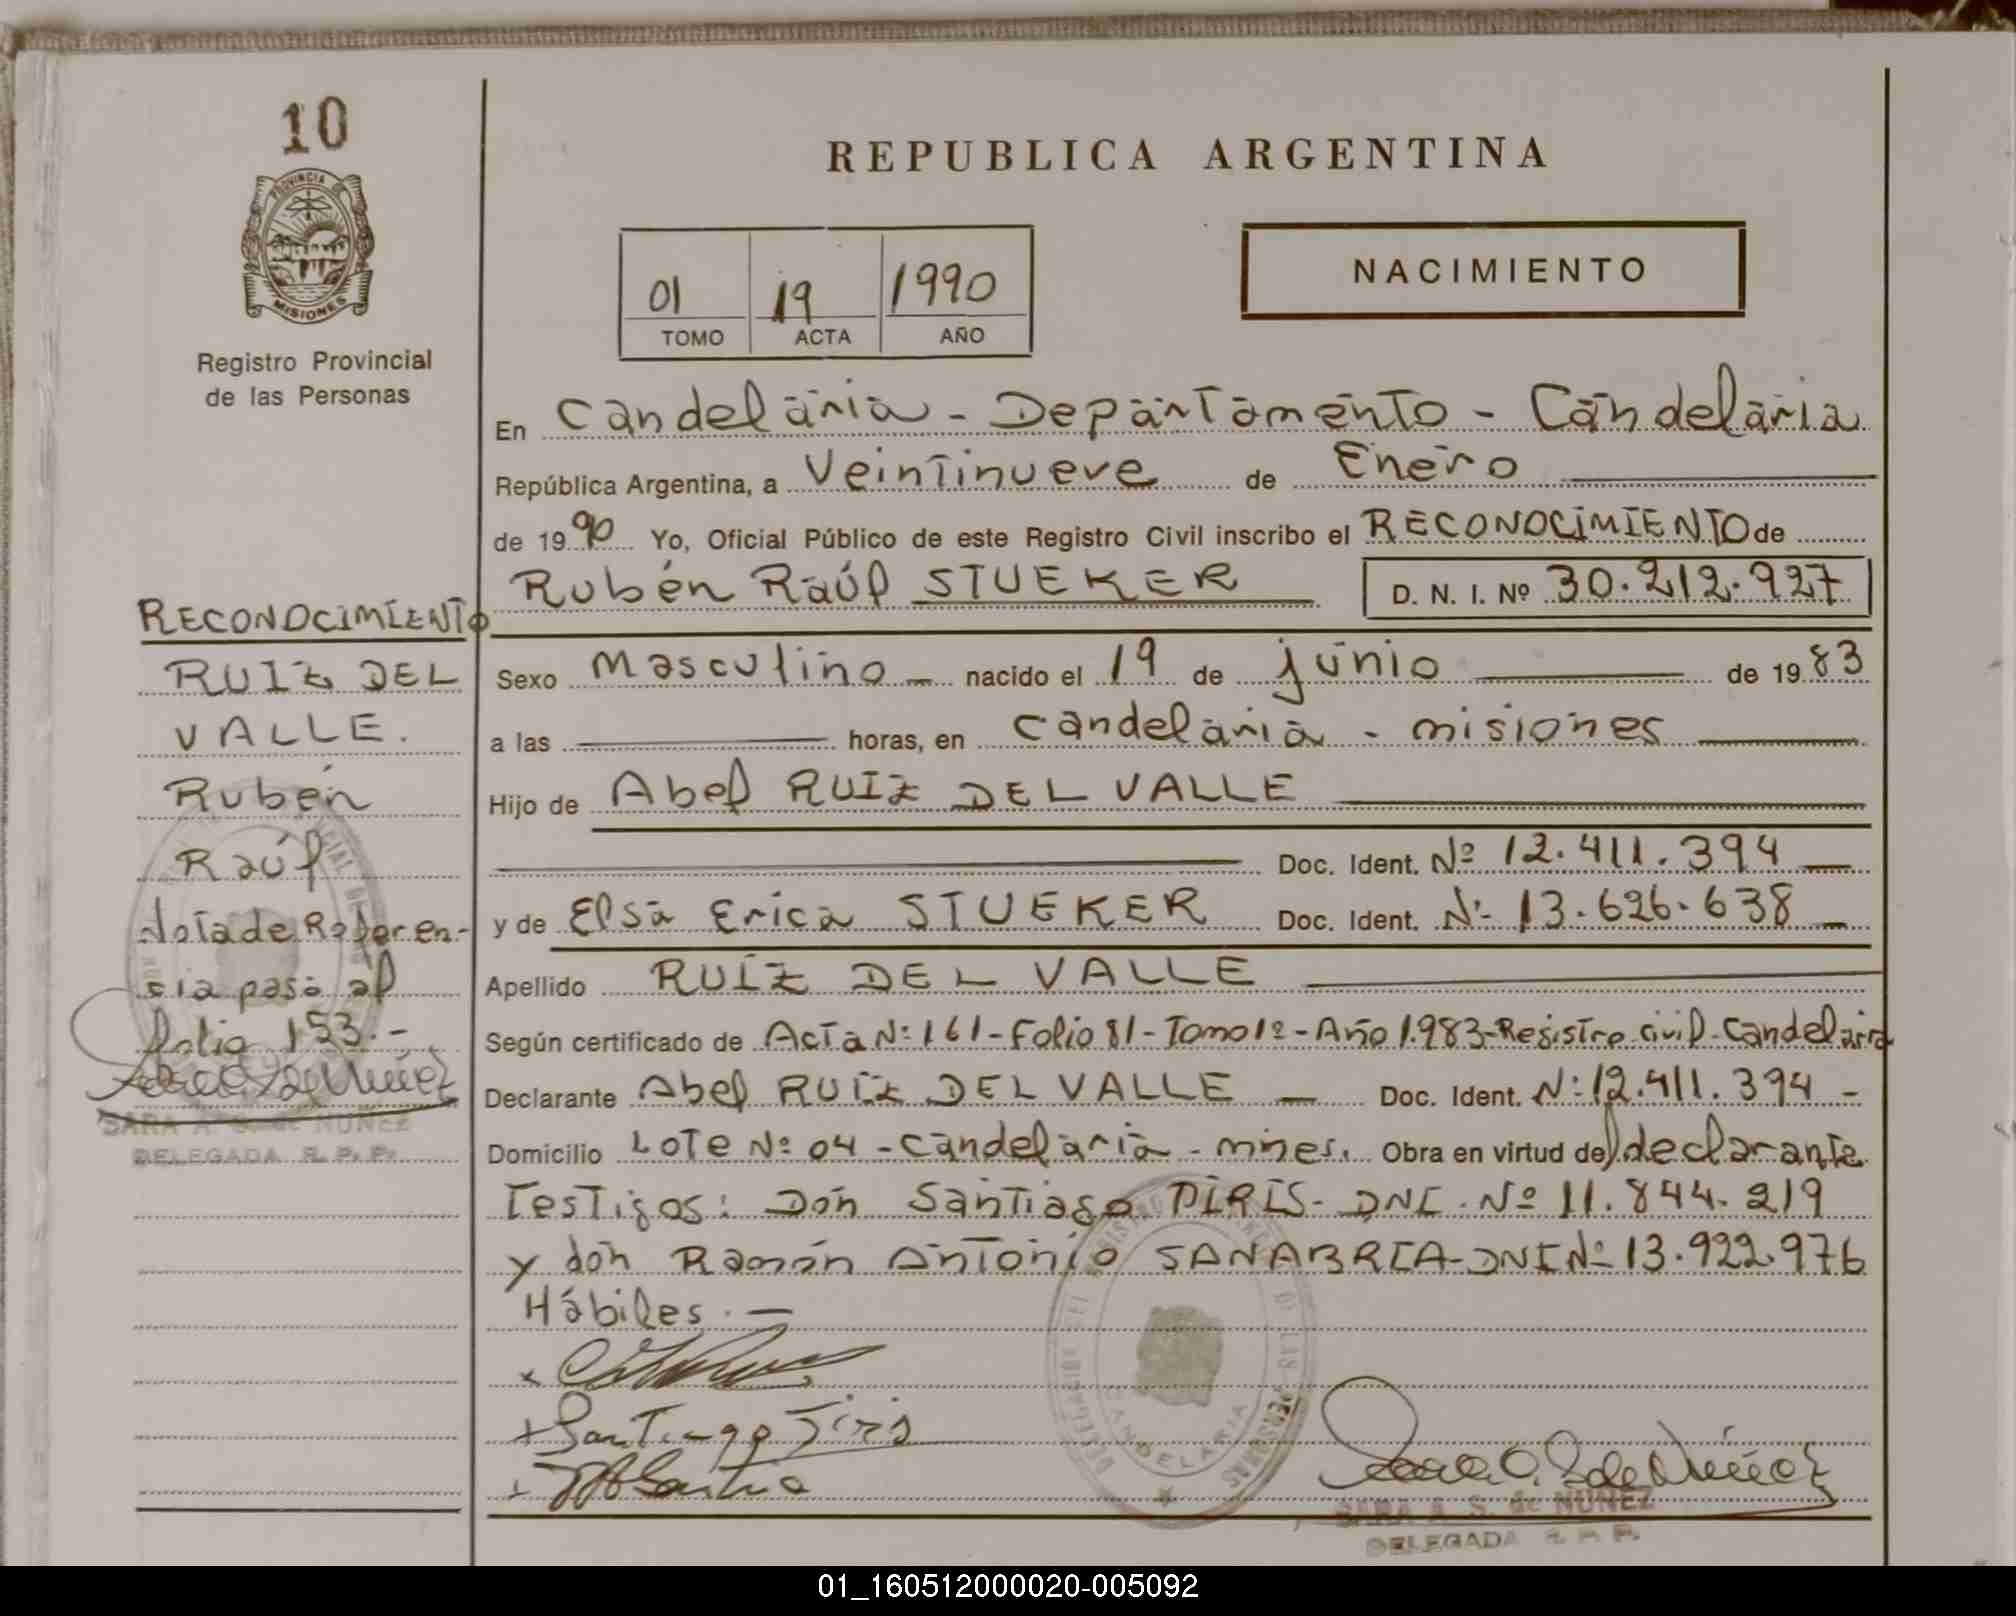 10
PROVINCIA DE
MISIONES
Registro Provincial
de las Personas
REPUBLICA ARGENTINA
01 19 1990
TOMO ACTA AÑO
NACIMIENTO
En Candelaria - Departamento - Candelaria
República Argentina, a Veintinueve de Enero
de 1990 Yo, Oficial Público de este Registro Civil inscribo el RECONOCIMIENTO de
Rubén Raúl STUEKER D. N. I. Nº 30.212.927
Sexo Masculino - nacido el 19 de junio de 1983
a las horas, en Candelaria - misiones
Hijo de Abel RUIZ DEL VALLE
Doc. Ident. Nº 12.411.394 -
y de Elsa Erica STUEKER Doc. Ident. Nº 13.626.638 -
Apellido RUIZ DEL VALLE
Según certificado de Acta Nº 161 - Folio 81 - Tomo 1º - Año 1.983 - Registro Civil - Candelaria
Declarante Abel RUIZ DEL VALLE - Doc. Ident. Nº 12.411.394 -
Domicilio Lote Nº 04 - Candelaria - mnes. Obra en virtud del declarante
Testigos: Don Santiago PIRIS - DNI. Nº 11.844.219
y don Ramón Antonio SANABRIA - DNI Nº 13.922.976
Hábiles. -
Santiago Piris
CANDELARIA
SARA A. S. de NUÑEZ
DELEGADA R. P. P.
RECONOCIMIENTO
RUIZ DEL
VALLE.
Rubén
Raúl
Nota de Referen-
cia pasa al
folio 153. -
SARA A. S. de NUÑEZ
DELEGADA R. P. P.
01_160512000020-005092